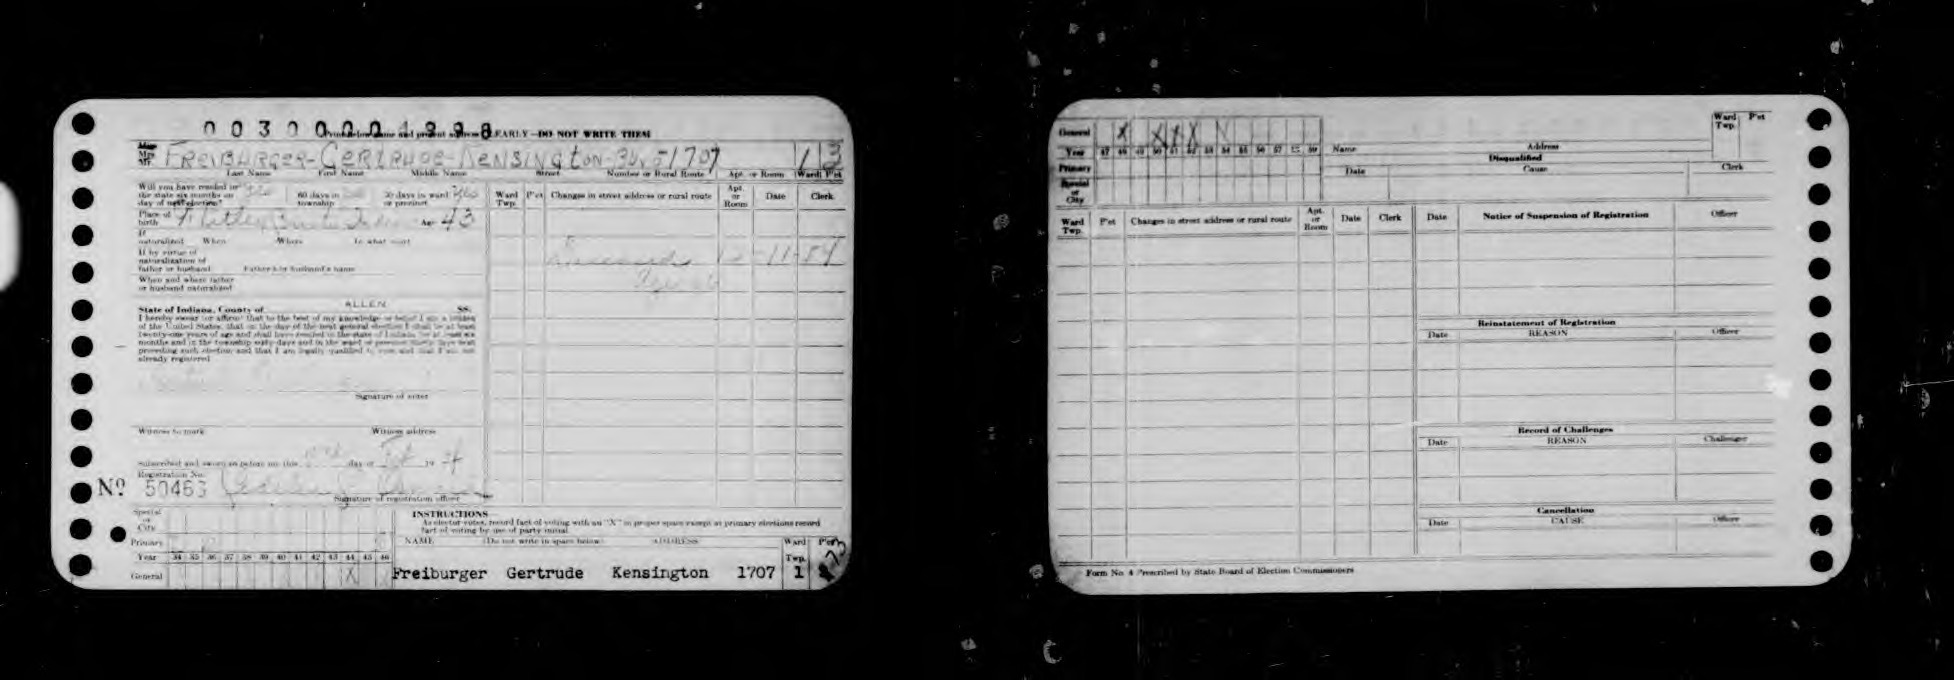 0030000 1998
Print below name and present address CLEARLY—DO NOT WRITE THEM
Miss
Mrs.
Mr. FREIBURGER-GERTRUDE-KENSINGTON-BLVD-1707 1 3
Last Name First Name Middle Name Street Number or Rural Route Apt. or Room Ward P'ct
Will you have resided in the state six months on day of next election? Yes 60 days in township 30 days in ward or precinct Yes
Place of birth Age 43
If naturalized When Where In what court
If by virtue of naturalization of father or husband Father's or husband's name
When and where father or husband naturalized
State of Indiana, County of ALLEN SS:
I hereby swear (or affirm) that to the best of my knowledge or belief I am a citizen
of the United States, that on the day of the next general election I shall be at least
twenty-one years of age and shall have resided in the state of Indiana for at least six
months and in the township sixty days and in the ward or precinct thirty days next
preceding such election and that I am legally qualified to vote and that I am not
already registered
Signature of voter
Witness to mark Witness address
Subscribed and sworn to before me this day of 19
Registration No.
No 50463
Signature of registration officer
Ward Twp. P'ct Changes in street address or rural route Apt. or Room Date Clerk
Deceased 12-11-54
Age
Special or City
Primary
Year 34 35 36 37 38 39 40 41 42 43 44 45 46
General X
INSTRUCTIONS
As elector votes, record fact of voting with an "X" in proper space except at primary elections record
fact of voting by use of party initial.
NAME (Do not write in space below) ADDRESS Ward Twp. P'ct
Freiburger Gertrude Kensington 1707 1
General X X X X
Year 47 48 49 50 51 52 53 54 55 56 57 58 59
Primary
Special or City
Name Address Ward Twp. P'ct
Disqualified
Date Cause Clerk
Ward Twp. P'ct Changes in street address or rural route Apt. or Room Date Clerk
Date Notice of Suspension of Registration Officer
Reinstatement of Registration
Date REASON Officer
Record of Challenges
Date REASON Challenger
Cancellation
Date CAUSE Officer
Form No. 4 Prescribed by State Board of Election Commissioners